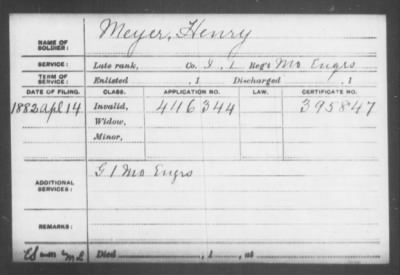 NAME OF SOLDIER: Meyer, Henry
SERVICE: Late rank, Co. I, 1 Reg't Mo Engrs
TERM OF SERVICE: Enlisted , 1 Discharged , 1
DATE OF FILING. CLASS. APPLICATION NO. LAW. CERTIFICATE NO.
1882 Apl 14 Invalid, 446344 395847
Widow,
Minor,
ADDITIONAL SERVICES: G 1 Mo Engrs
REMARKS:
Died , 1 , at